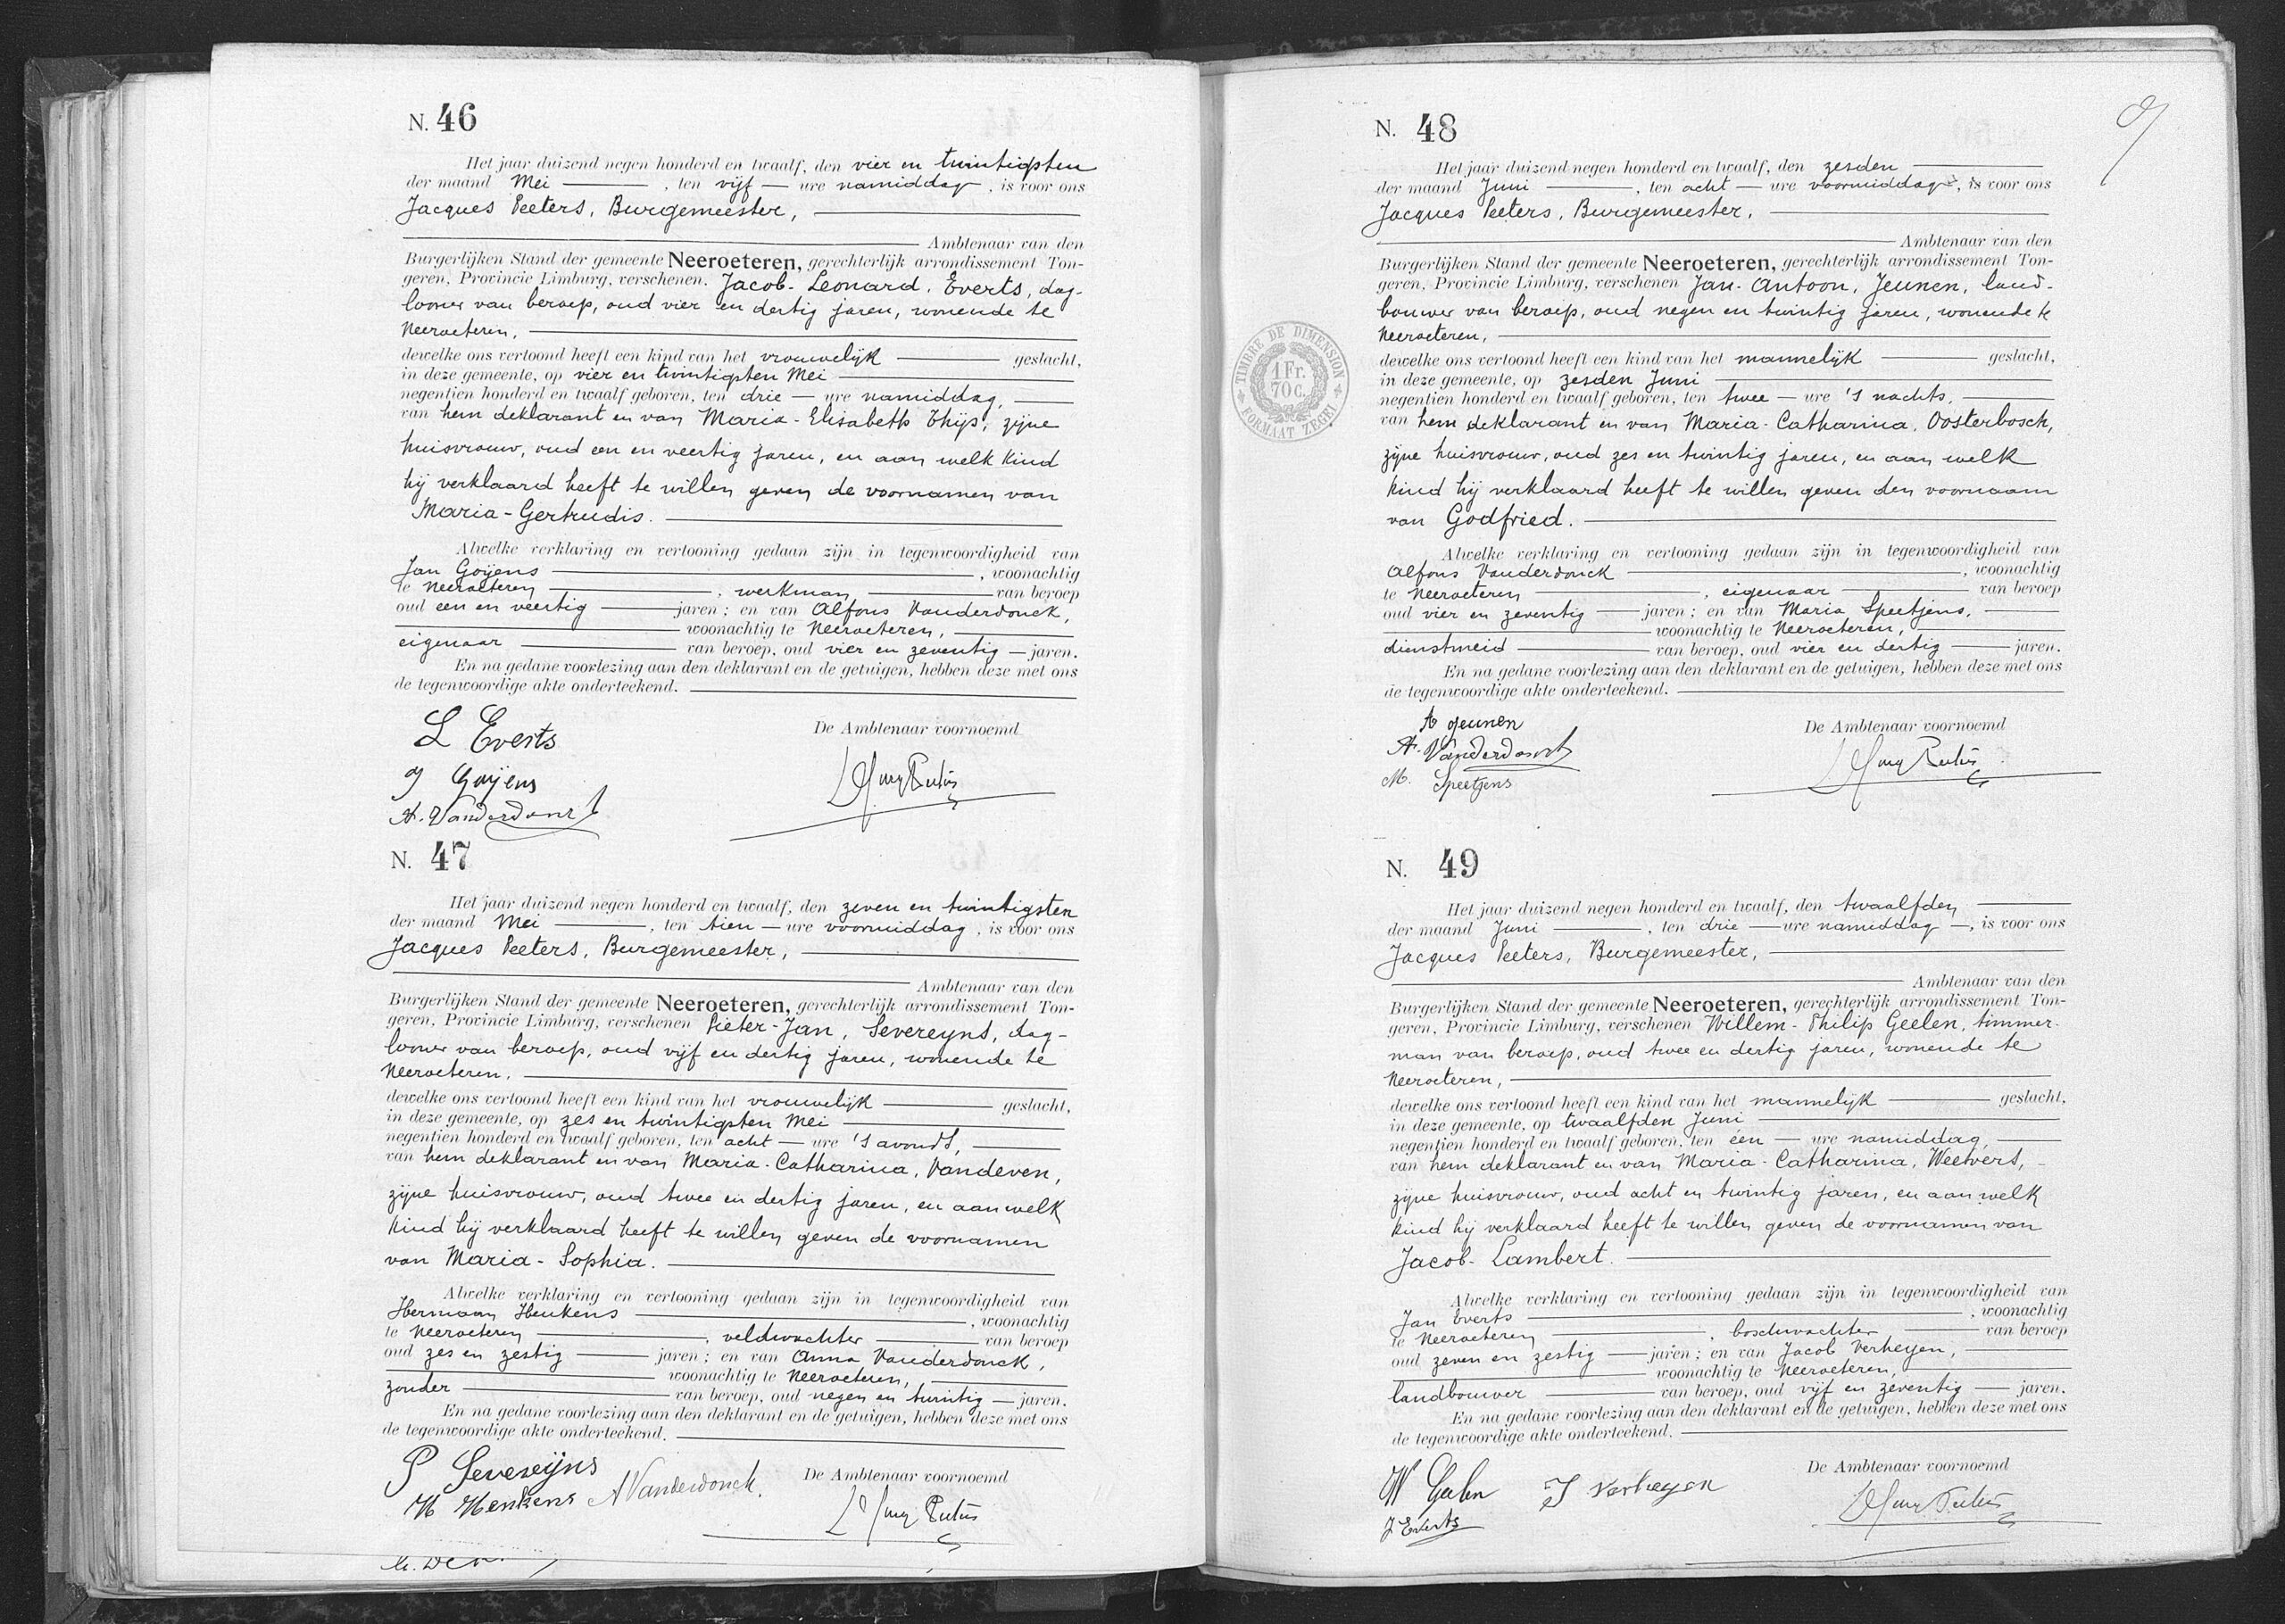 N. 46
Het jaar duizend negen honderd en twaalf, den vier en twintigsten
der maand Mei, ten vijf ure namiddag, is voor ons
Jacques Peeters, Burgemeester,
Ambtenaar van den
Burgerlijken Stand der gemeente Neeroeteren, gerechterlijk arrondissement Ton-
geren, Provincie Limburg, verschenen Jacob-Leonard, Everts, dag-
looner van beroep, oud vier en dertig jaren, wonende te
Neeroeteren,
dewelke ons vertoond heeft een kind van het vrouwelijk geslacht,
in deze gemeente, op vier en twintigsten Mei
negentien honderd en twaalf geboren, ten drie ure namiddag,
van hem deklarant en van Maria-Elisabeth Thijs, zijne
huisvrouw, oud een en veertig jaren, en aan welk kind
hij verklaard heeft te willen geven de voornamen van
Maria-Gertrudis.
Alwelke verklaring en vertooning gedaan zijn in tegenwoordigheid van
Jan Goijens, woonachtig
te Neeroeteren, werkman van beroep
oud een en veertig jaren; en van Alfons Vanderdonck,
woonachtig te Neeroeteren,
eigenaar van beroep, oud vier en zeventig jaren.
En na gedane voorlezing aan den deklarant en de getuigen, hebben deze met ons
de tegenwoordige akte onderteekend.
L Everts
De Ambtenaar voornoemd
J Goijens
A. Vanderdonck
N. 47
Het jaar duizend negen honderd en twaalf, den zeven en twintigsten
der maand Mei, ten tien ure voormiddag, is voor ons
Jacques Peeters, Burgemeester,
Ambtenaar van den
Burgerlijken Stand der gemeente Neeroeteren, gerechterlijk arrondissement Ton-
geren, Provincie Limburg, verschenen Pieter-Jan, Severeyns, dag-
looner van beroep, oud vijf en dertig jaren, wonende te
Neeroeteren,
dewelke ons vertoond heeft een kind van het vrouwelijk geslacht,
in deze gemeente, op zes en twintigsten Mei
negentien honderd en twaalf geboren, ten acht ure 's avonds,
van hem deklarant en van Maria-Catharina, Vandeven,
zijne huisvrouw, oud twee en dertig jaren, en aan welk
kind hij verklaard heeft te willen geven de voornamen
van Maria-Sophia.
Alwelke verklaring en vertooning gedaan zijn in tegenwoordigheid van
Herman Henkens, woonachtig
te Neeroeteren, veldwachter van beroep
oud zes en zestig jaren; en van Anna Vanderdonck,
woonachtig te Neeroeteren,
zonder van beroep, oud negen en twintig jaren.
En na gedane voorlezing aan den deklarant en de getuigen, hebben deze met ons
de tegenwoordige akte onderteekend.
P Severeijns
De Ambtenaar voornoemd
H Henkens A Vanderdonck.
N. 48
Het jaar duizend negen honderd en twaalf, den zesden
der maand Juni, ten acht ure voormiddag, is voor ons
Jacques Peeters, Burgemeester,
Ambtenaar van den
Burgerlijken Stand der gemeente Neeroeteren, gerechterlijk arrondissement Ton-
geren, Provincie Limburg, verschenen Jan-Antoon, Jeunen, land-
bouwer van beroep, oud negen en twintig jaren, wonende te
Neeroeteren,
dewelke ons vertoond heeft een kind van het mannelijk geslacht,
in deze gemeente, op zesden Juni
negentien honderd en twaalf geboren, ten twee ure 's nachts,
van hem deklarant en van Maria-Catharina, Oosterbosch,
zijne huisvrouw, oud zes en twintig jaren, en aan welk
kind hij verklaard heeft te willen geven den voornaam
van Godfried.
Alwelke verklaring en vertooning gedaan zijn in tegenwoordigheid van
Alfons Vanderdonck, woonachtig
te Neeroeteren, eigenaar van beroep
oud vier en zeventig jaren; en van Maria Speetjens,
woonachtig te Neeroeteren,
dienstmeid van beroep, oud vier en dertig jaren.
En na gedane voorlezing aan den deklarant en de getuigen, hebben deze met ons
de tegenwoordige akte onderteekend.
A Jeunen
De Ambtenaar voornoemd
A. Vanderdonck
M. Speetjens
TIMBRE DE DIMENSION
1 Fr.
70 c.
FORMAAT ZEGEL
N. 49
Het jaar duizend negen honderd en twaalf, den twaalfden
der maand Juni, ten drie ure namiddag, is voor ons
Jacques Peeters, Burgemeester,
Ambtenaar van den
Burgerlijken Stand der gemeente Neeroeteren, gerechterlijk arrondissement Ton-
geren, Provincie Limburg, verschenen Willem-Philip Geelen, timmer-
man van beroep, oud twee en dertig jaren, wonende te
Neeroeteren,
dewelke ons vertoond heeft een kind van het mannelijk geslacht,
in deze gemeente, op twaalfden Juni
negentien honderd en twaalf geboren, ten één ure namiddag,
van hem deklarant en van Maria-Catharina, Weetvers,
zijne huisvrouw, oud acht en twintig jaren, en aan welk
kind hij verklaard heeft te willen geven de voornamen van
Jacob-Lambert.
Alwelke verklaring en vertooning gedaan zijn in tegenwoordigheid van
Jan Everts, woonachtig
te Neeroeteren, boschwachter van beroep
oud zeven en zestig jaren; en van Jacob Verheyen,
woonachtig te Neeroeteren,
landbouwer van beroep, oud vijf en zeventig jaren.
En na gedane voorlezing aan den deklarant en de getuigen, hebben deze met ons
de tegenwoordige akte onderteekend.
De Ambtenaar voornoemd
W Geelen J Verheyen
J Everts